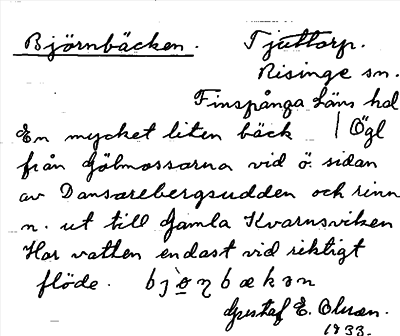 Björnbäcken. Tjuttorp.
Risinge sn.
Finspånga läns hd
En mycket liten bäck | Ögl
från Gölmossarna vid ö. sidan
av Dansarebergsudden och rinn
n. ut till Gamla Kvarnsviken
Har vatten endast vid riktigt
flöde. bjo̲ηbækən
Gustaf E. Olsson.
1933.